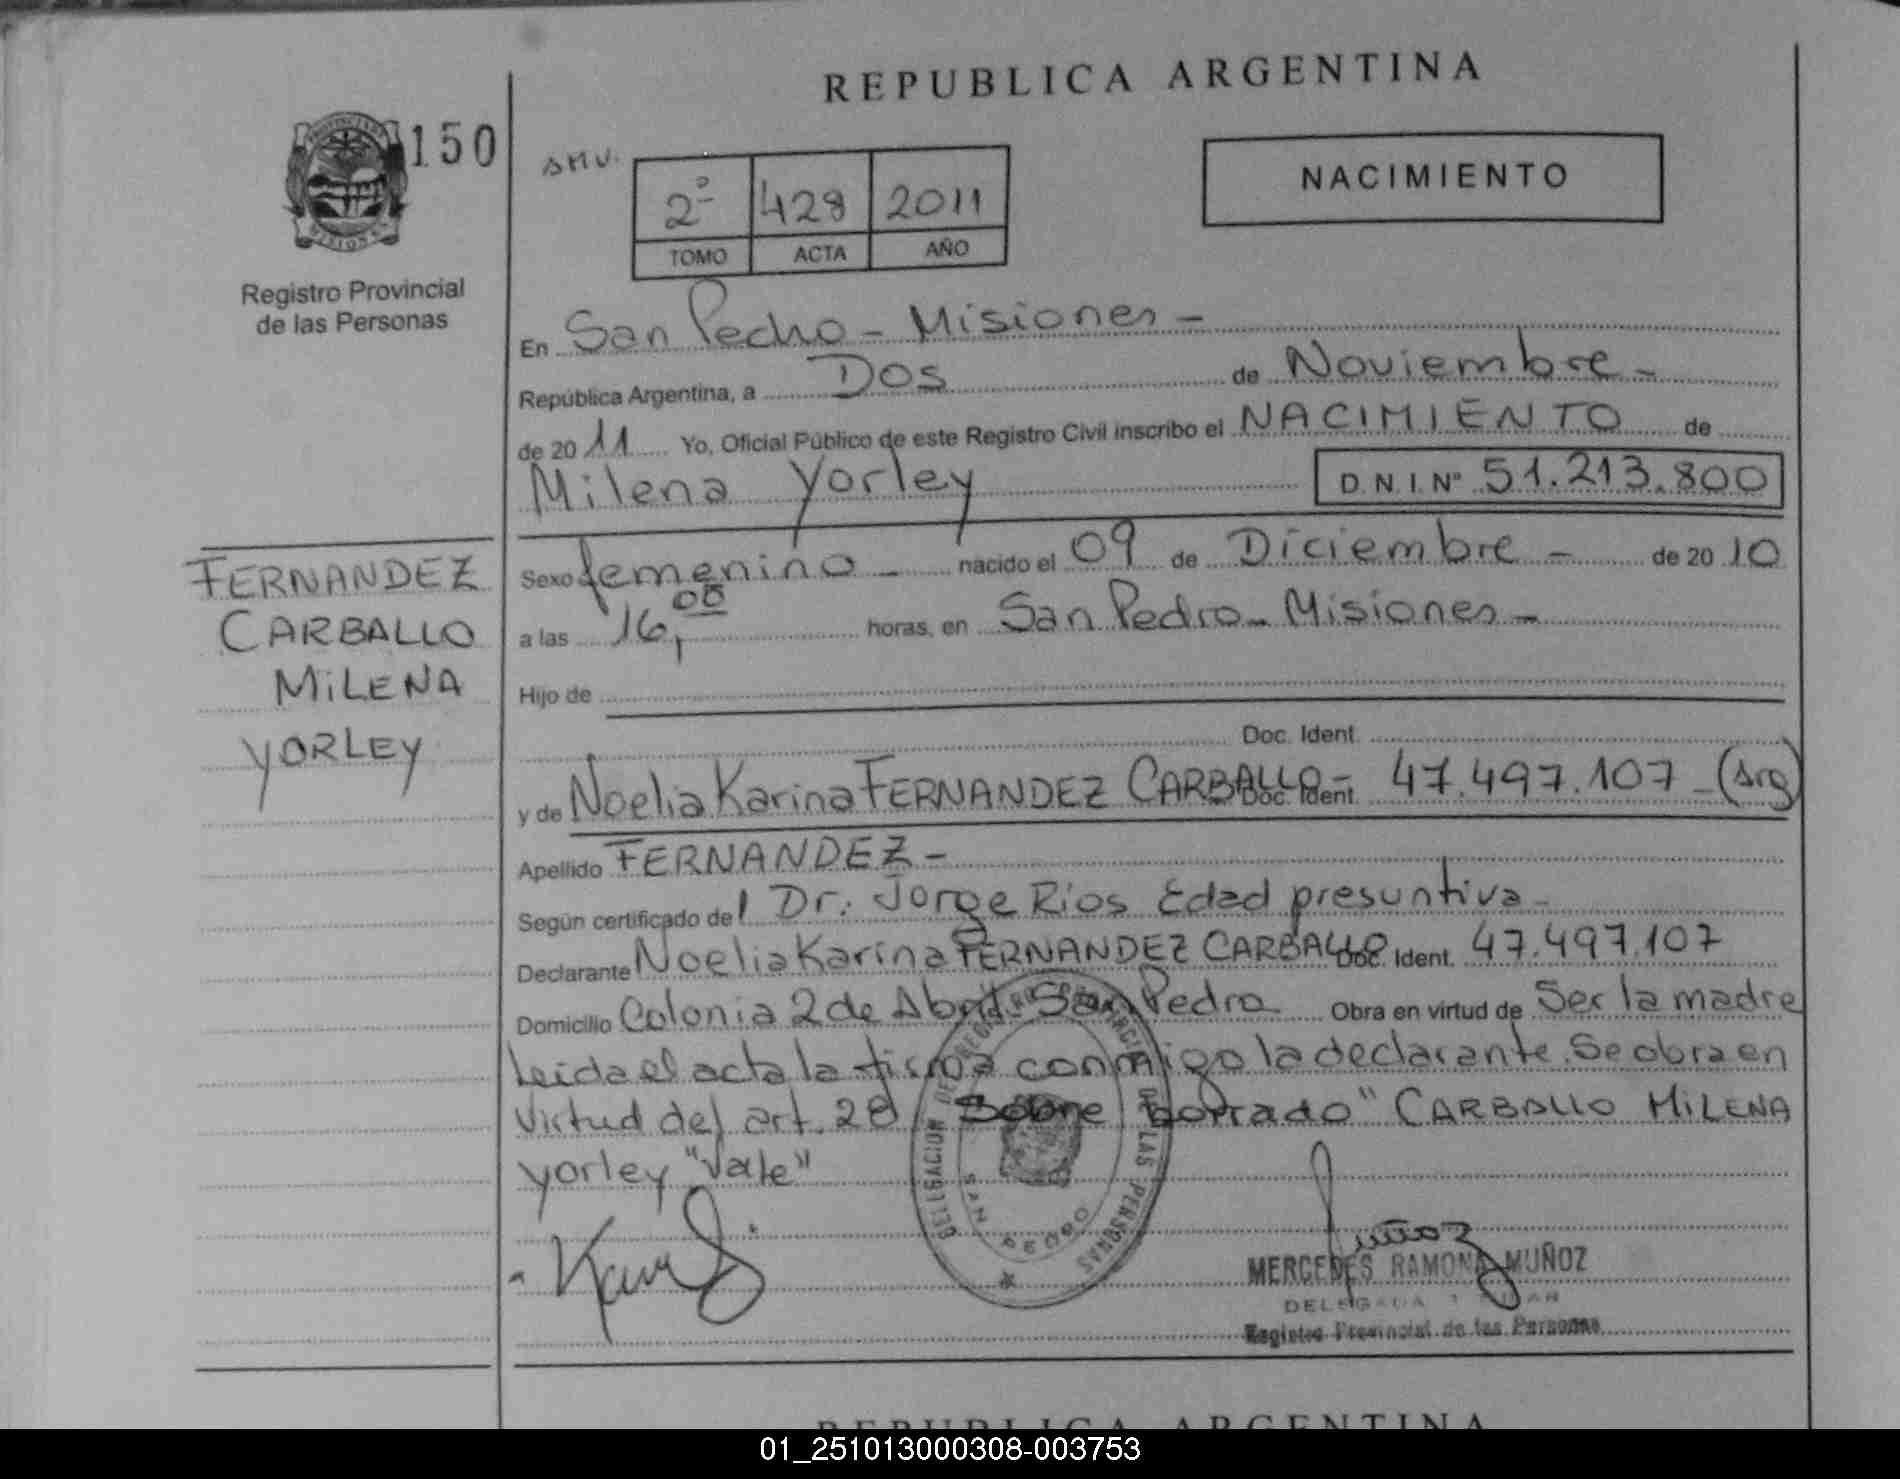 REPUBLICA ARGENTINA
PROVINCIA DE
MISIONES
150
SMU.
2º 428 2011
TOMO ACTA AÑO
NACIMIENTO
Registro Provincial
de las Personas
En San Pedro - Misiones -
República Argentina, a Dos de Noviembre -
de 2011 Yo, Oficial Público de este Registro Civil inscribo el NACIMIENTO de
Milena Yorley D.N.I. Nº 51.213.800
FERNANDEZ
CARBALLO
MiLENA
YORLEY
Sexo femenino - nacido el 09 de Diciembre - de 2010
a las 16,00 horas, en San Pedro - Misiones -
Hijo de
Doc. Ident.
y de Noelia Karina FERNANDEZ CARBALLO - Doc. Ident. 47.497.107 - (Arg)
Apellido FERNANDEZ -
Según certificado del Dr: Jorge Rios Edad presuntiva -
Declarante Noelia Karina FERNANDEZ CARBALLO Doc. Ident. 47.497.107
Domicilio Colonia 2 de Abril - San Pedro Obra en virtud de Ser la madre
Leida el acta la firma conmigo la declarante. Se obra en
virtud del art. 28 Sobre borrado" CARBALLO MiLENA
yorley "Vale"
DELEGACION DE REGISTRO PROVINCIAL DE LAS PERSONAS
SAN PEDRO
Muñoz
MERCEDES RAMONA MUÑOZ
DELEGADA TITULAR
Registro Provincial de las Personas
REPUBLICA ARGENTINA
01_251013000308-003753